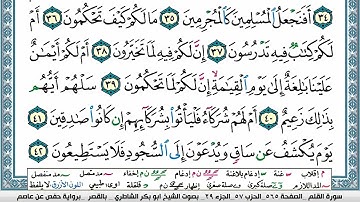 ٣٤ أَفَنَجْعَلُ ٱلْمُسْلِمِينَ كَٱلْمُجْرِمِينَ ٣٥ مَا لَكُمْ كَيْفَ تَحْكُمُونَ ٣٦ أَمْ
لَكُمْ كِتَٰبٌ فِيهِ تَدْرُسُونَ ٣٧ إِنَّ لَكُمْ فِيهِ لَمَا تَخَيَّرُونَ ٣٨ أَمْ لَكُمْ أَيْمَٰنٌ
عَلَيْنَا بَٰلِغَةٌ إِلَىٰ يَوْمِ ٱلْقِيَٰمَةِ إِنَّ لَكُمْ لَمَا تَحْكُمُونَ ٣٩ سَلْهُمْ أَيُّهُم
بِذَٰلِكَ زَعِيمٌ ٤٠ أَمْ لَهُمْ شُرَكَآءُ فَلْيَأْتُوا۟ بِشُرَكَآئِهِمْ إِن كَانُوا۟ صَٰدِقِينَ ٤١
يَوْمَ يُكْشَفُ عَن سَاقٍ وَيُدْعَوْنَ إِلَى ٱلسُّجُودِ فَلَا يَسْتَطِيعُونَ ٤٢
سورة القلم الصفحة ٥٦٥ حزب ٥٧ الجزء ٢٩ بصوت الشيخ أبو بكر الشاطري بالقصر برواية حفص عن عاصم